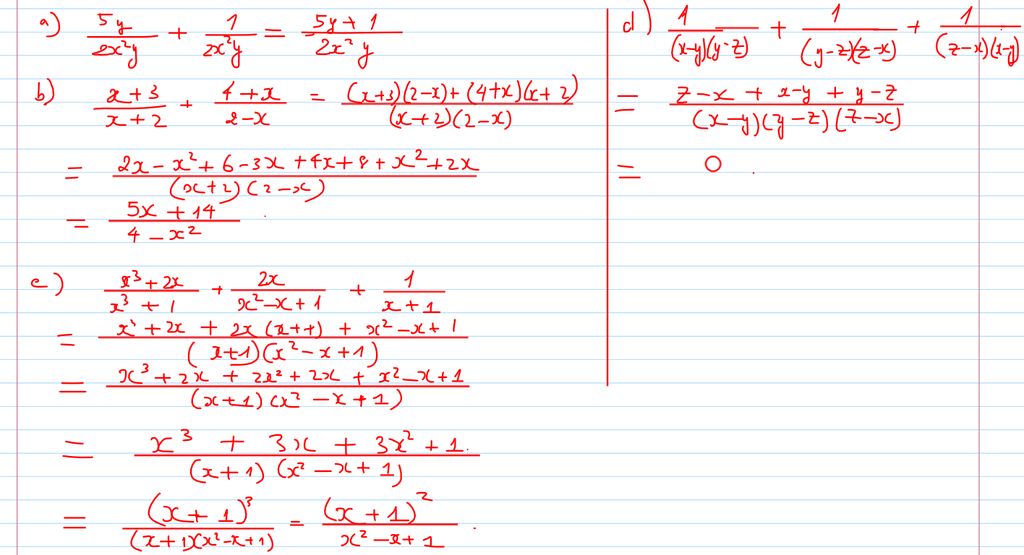 a) 5y/2x²y + 1/2x²y = (5y + 1)/2x²y
b) (x+3)/(x+2) + (4+x)/(2-x) = ((x+3)(2-x) + (4+x)(x+2))/((x+2)(2-x))
= (2x - x² + 6 - 3x + 4x + 8 + x² + 2x)/((x+2)(2-x))
= (5x + 14)/(4 - x²)
c) (x³ + 2x)/(x³ + 1) + 2x/(x² - x + 1) + 1/(x+1)
= (x³ + 2x + 2x(x+1) + x² - x + 1)/((x+1)(x² - x + 1))
= (x³ + 2x + 2x² + 2x + x² - x + 1)/((x+1)(x² - x + 1))
= (x³ + 3x + 3x² + 1)/((x+1)(x² - x + 1))
= (x+1)³/((x+1)(x² - x + 1)) = (x+1)²/(x² - x + 1).
d) 1/((x-y)(y-z)) + 1/((y-z)(z-x)) + 1/((z-x)(x-y))
= (z-x + x-y + y-z)/((x-y)(y-z)(z-x))
= 0.